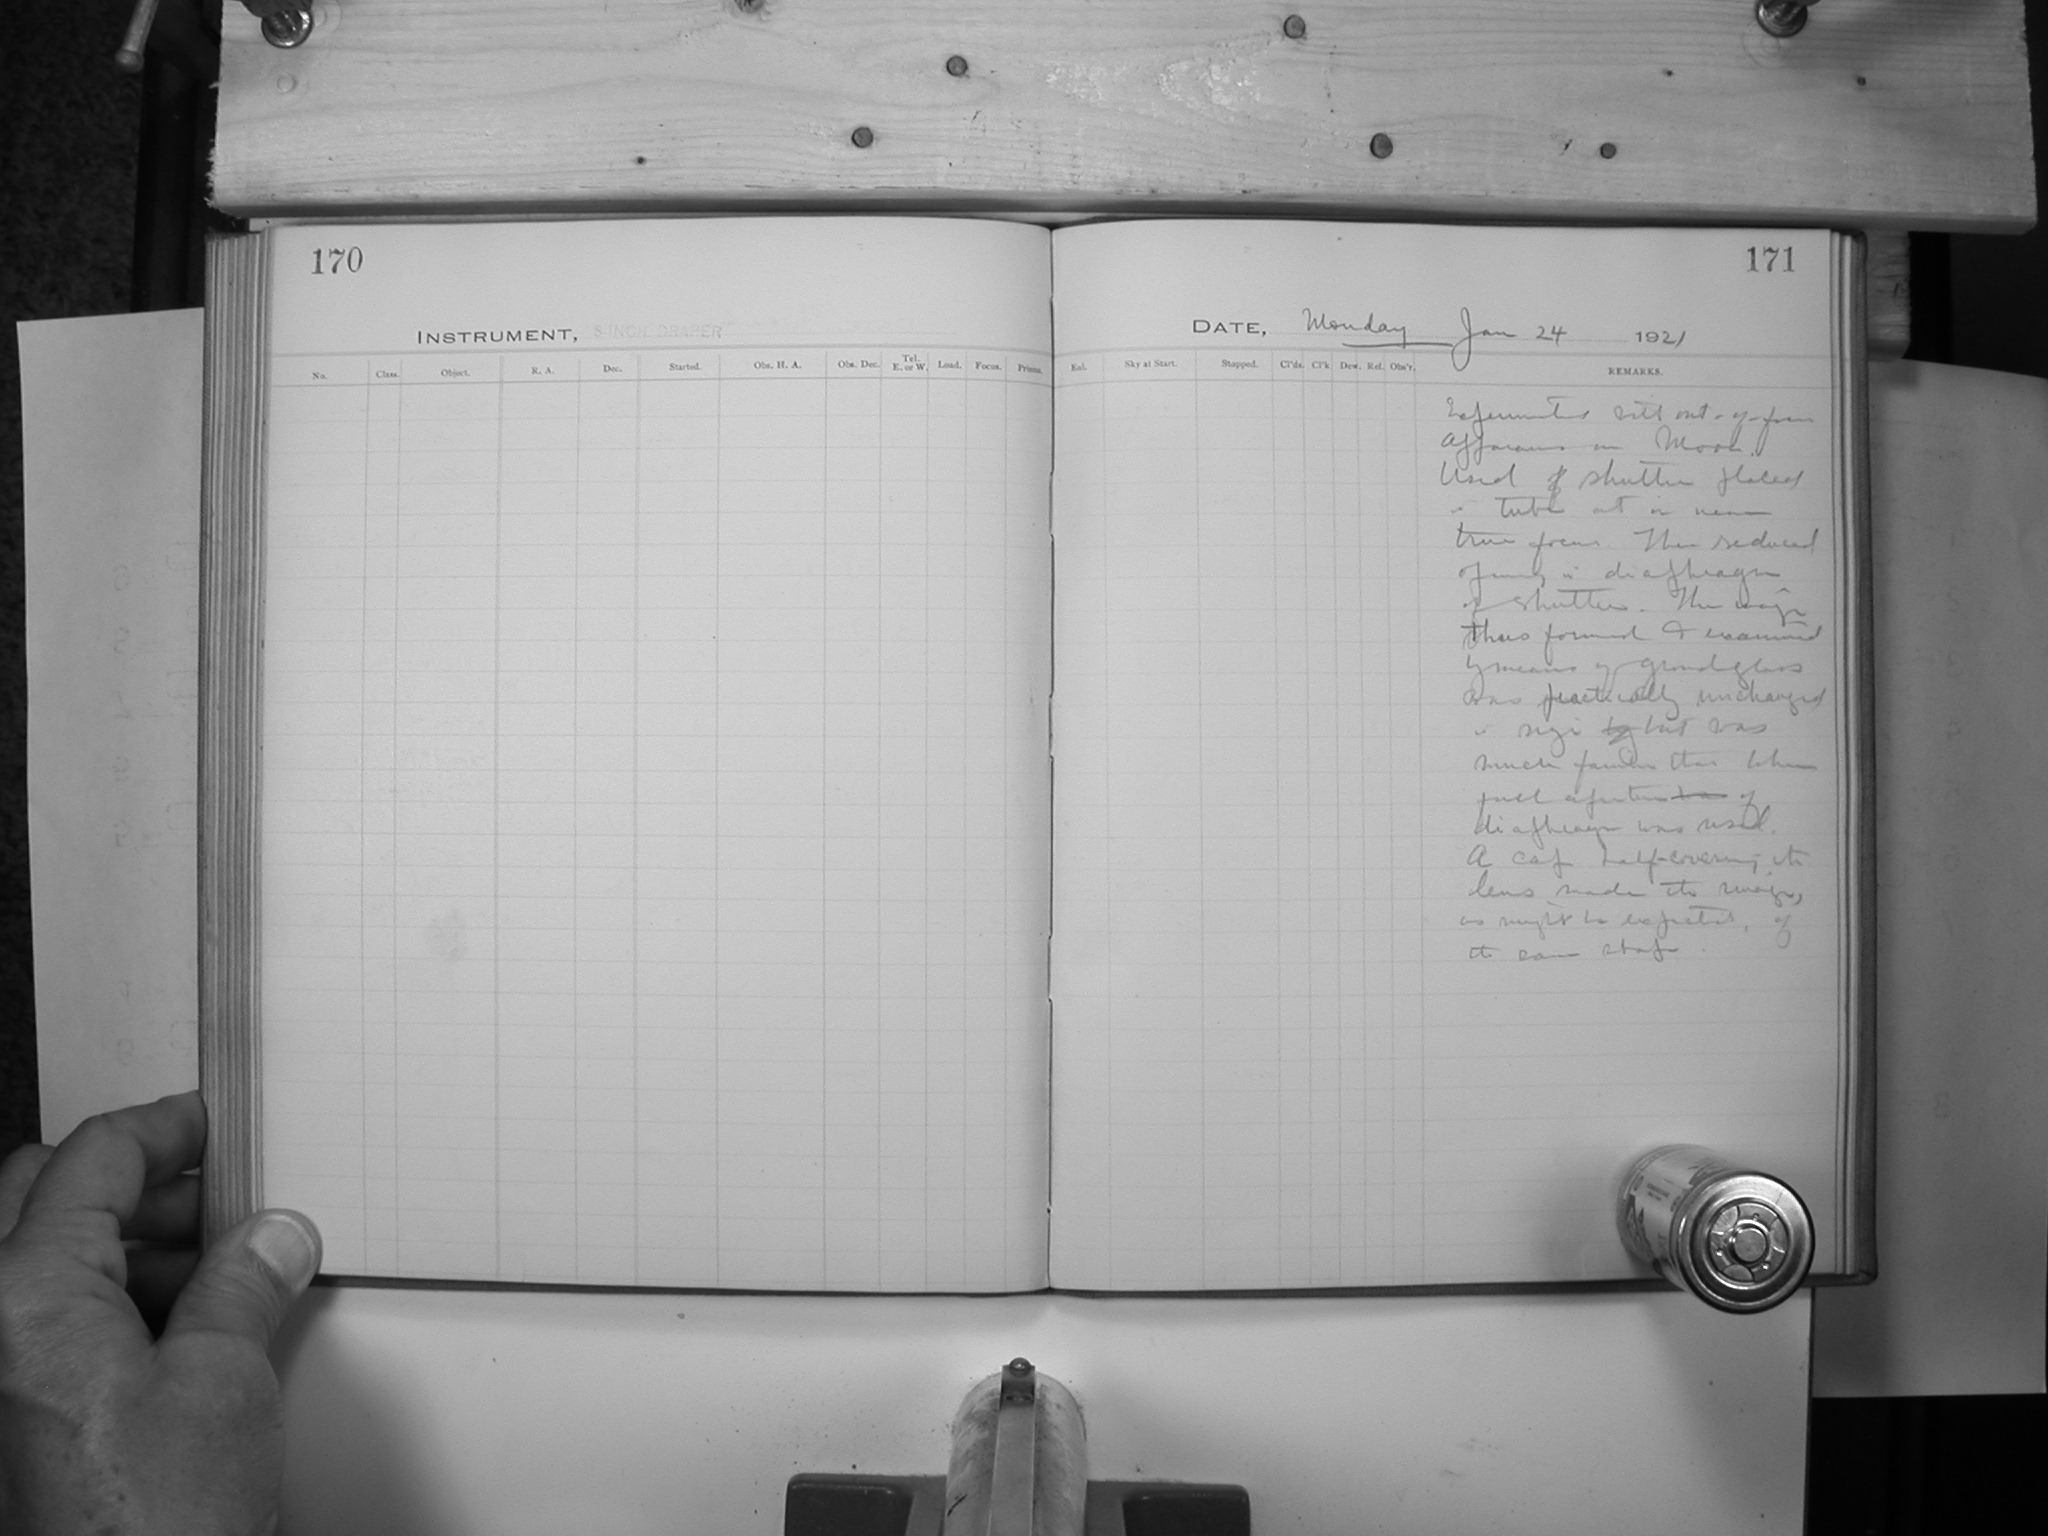 170
INSTRUMENT, 8-INCH DRAPER
No. Class. Object. R. A. Dec. Started. Obs. H. A. Obs. Dec. Tel. E. or W. Load. Focus. Prisms.
171
DATE, Monday Jan 24 1921
Eal. Sky at Start. Stopped. Cl'ds. Cl'k Dew. Ref. Obs'r. REMARKS.
Experimented with out-of-focus
apparatus on Moon.
Used shutter placed
in tube at or near
true focus. Then reduced
opening in diaphragm
of shutter. The image
thus formed & examined
by means of ground glass
was practically unchanged
in size but was
much fainter than when
full aperture of
diaphragm was used.
A cap half-covering the
lens made the image,
as might be expected, of
the same shape.